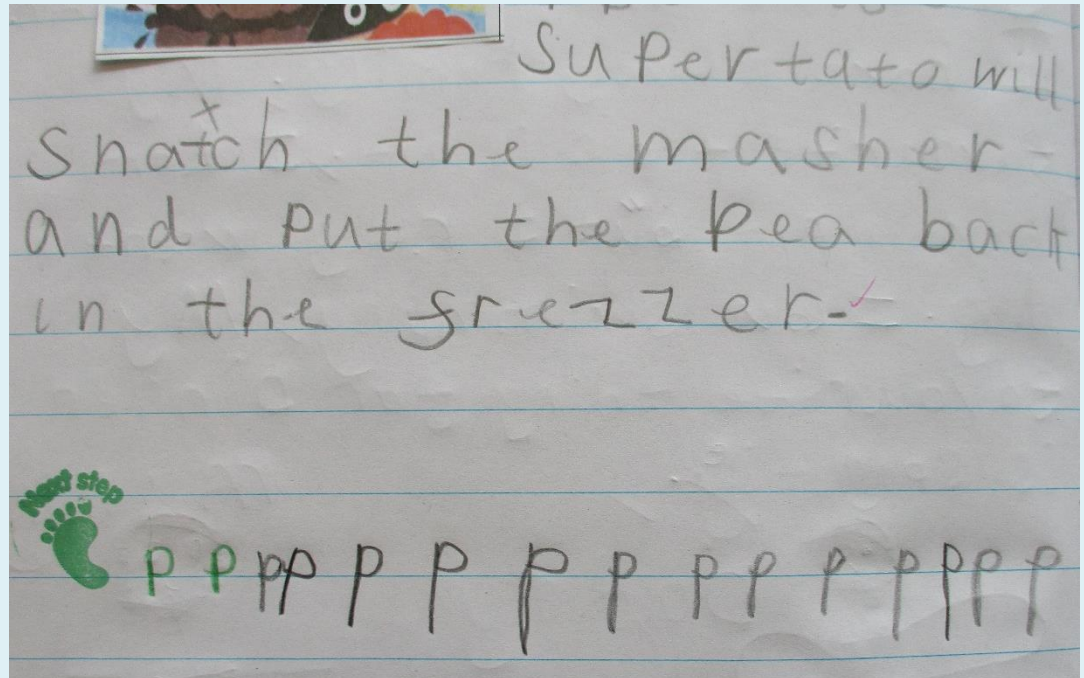 Supertato will
snatch the masher
and put the pea back
in the frezzer.
Next step
p p pp p p p p p p p p p p p